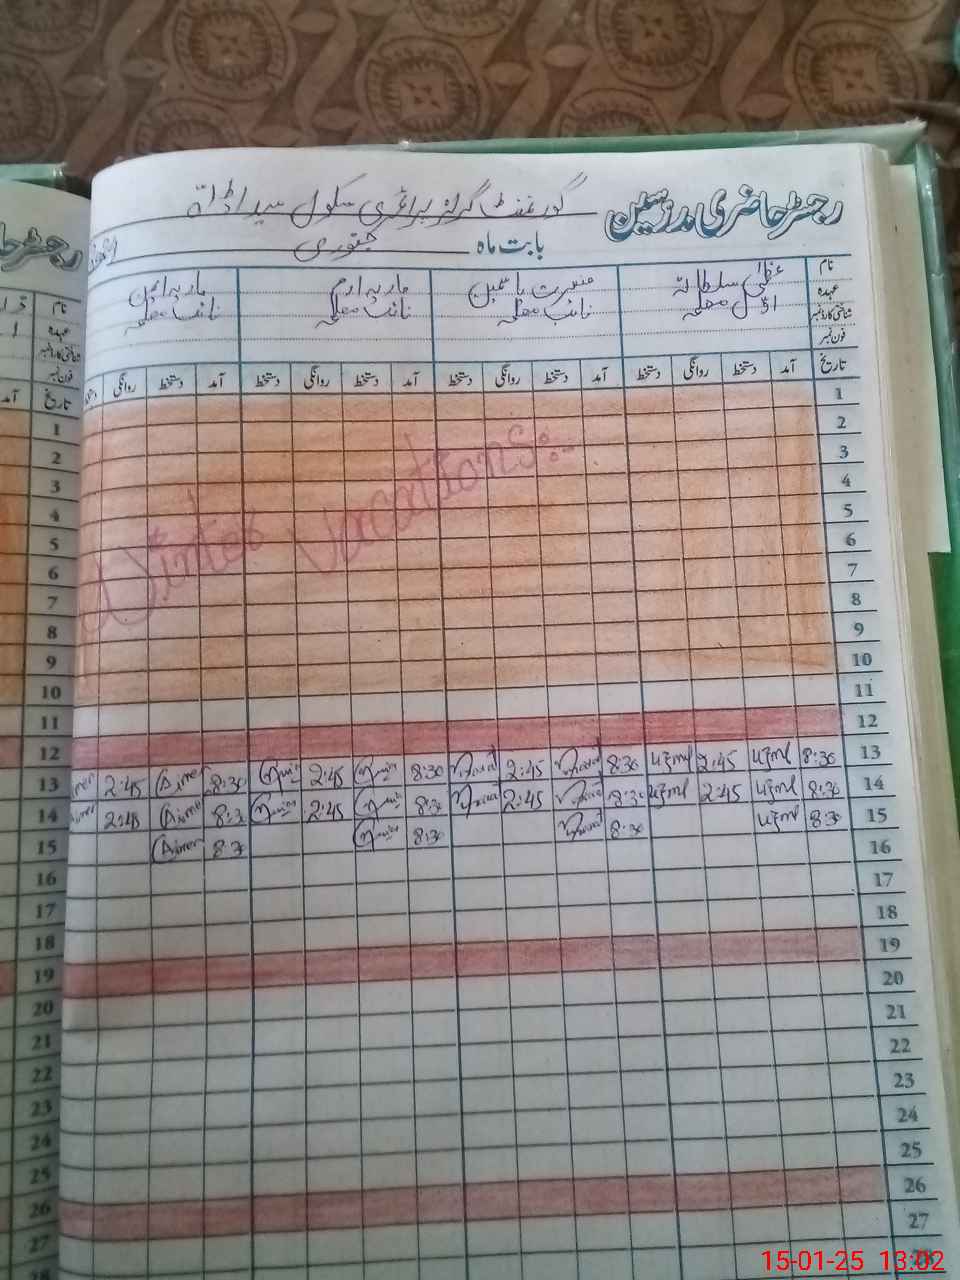 رجسٹر حاضری مدرسین گورنمنٹ گرلز پرائمری سکول
بابت ماہ جنوری
نام عظمیٰ سلطانہ یاسمین ماریہ ارم ماریہ ایمن
عہدہ اول معلمہ نائب معلمہ نائب معلمہ نائب معلمہ
شناختی کارڈ نمبر
فون نمبر
تاریخ آمد دستخط روانگی دستخط آمد دستخط روانگی دستخط آمد دستخط روانگی دستخط آمد دستخط روانگی
1
2
3
4
5
6
7
8
9
10
Winter Vacations:-
11
12
13 8:30 Uzma 2:45 Uzma 8:30 2:45 8:30 2:45 8:30 2:45
14 8:30 Uzma 2:45 Uzma 8:30 2:45 8:30 2:45 8:30 2:45
15 8:30 Uzma 8:30 8:30 8:30
16
17
18
19
20
21
22
23
24
25
26
27
28
رجسٹر
نام
عہدہ
شناختی کارڈ نمبر
فون نمبر
تاریخ آمد
1
2
3
4
5
6
7
8
9
10
11
12
13
14
15
16
17
18
19
20
21
22
23
24
25
26
27
28
15-01-25 13:02